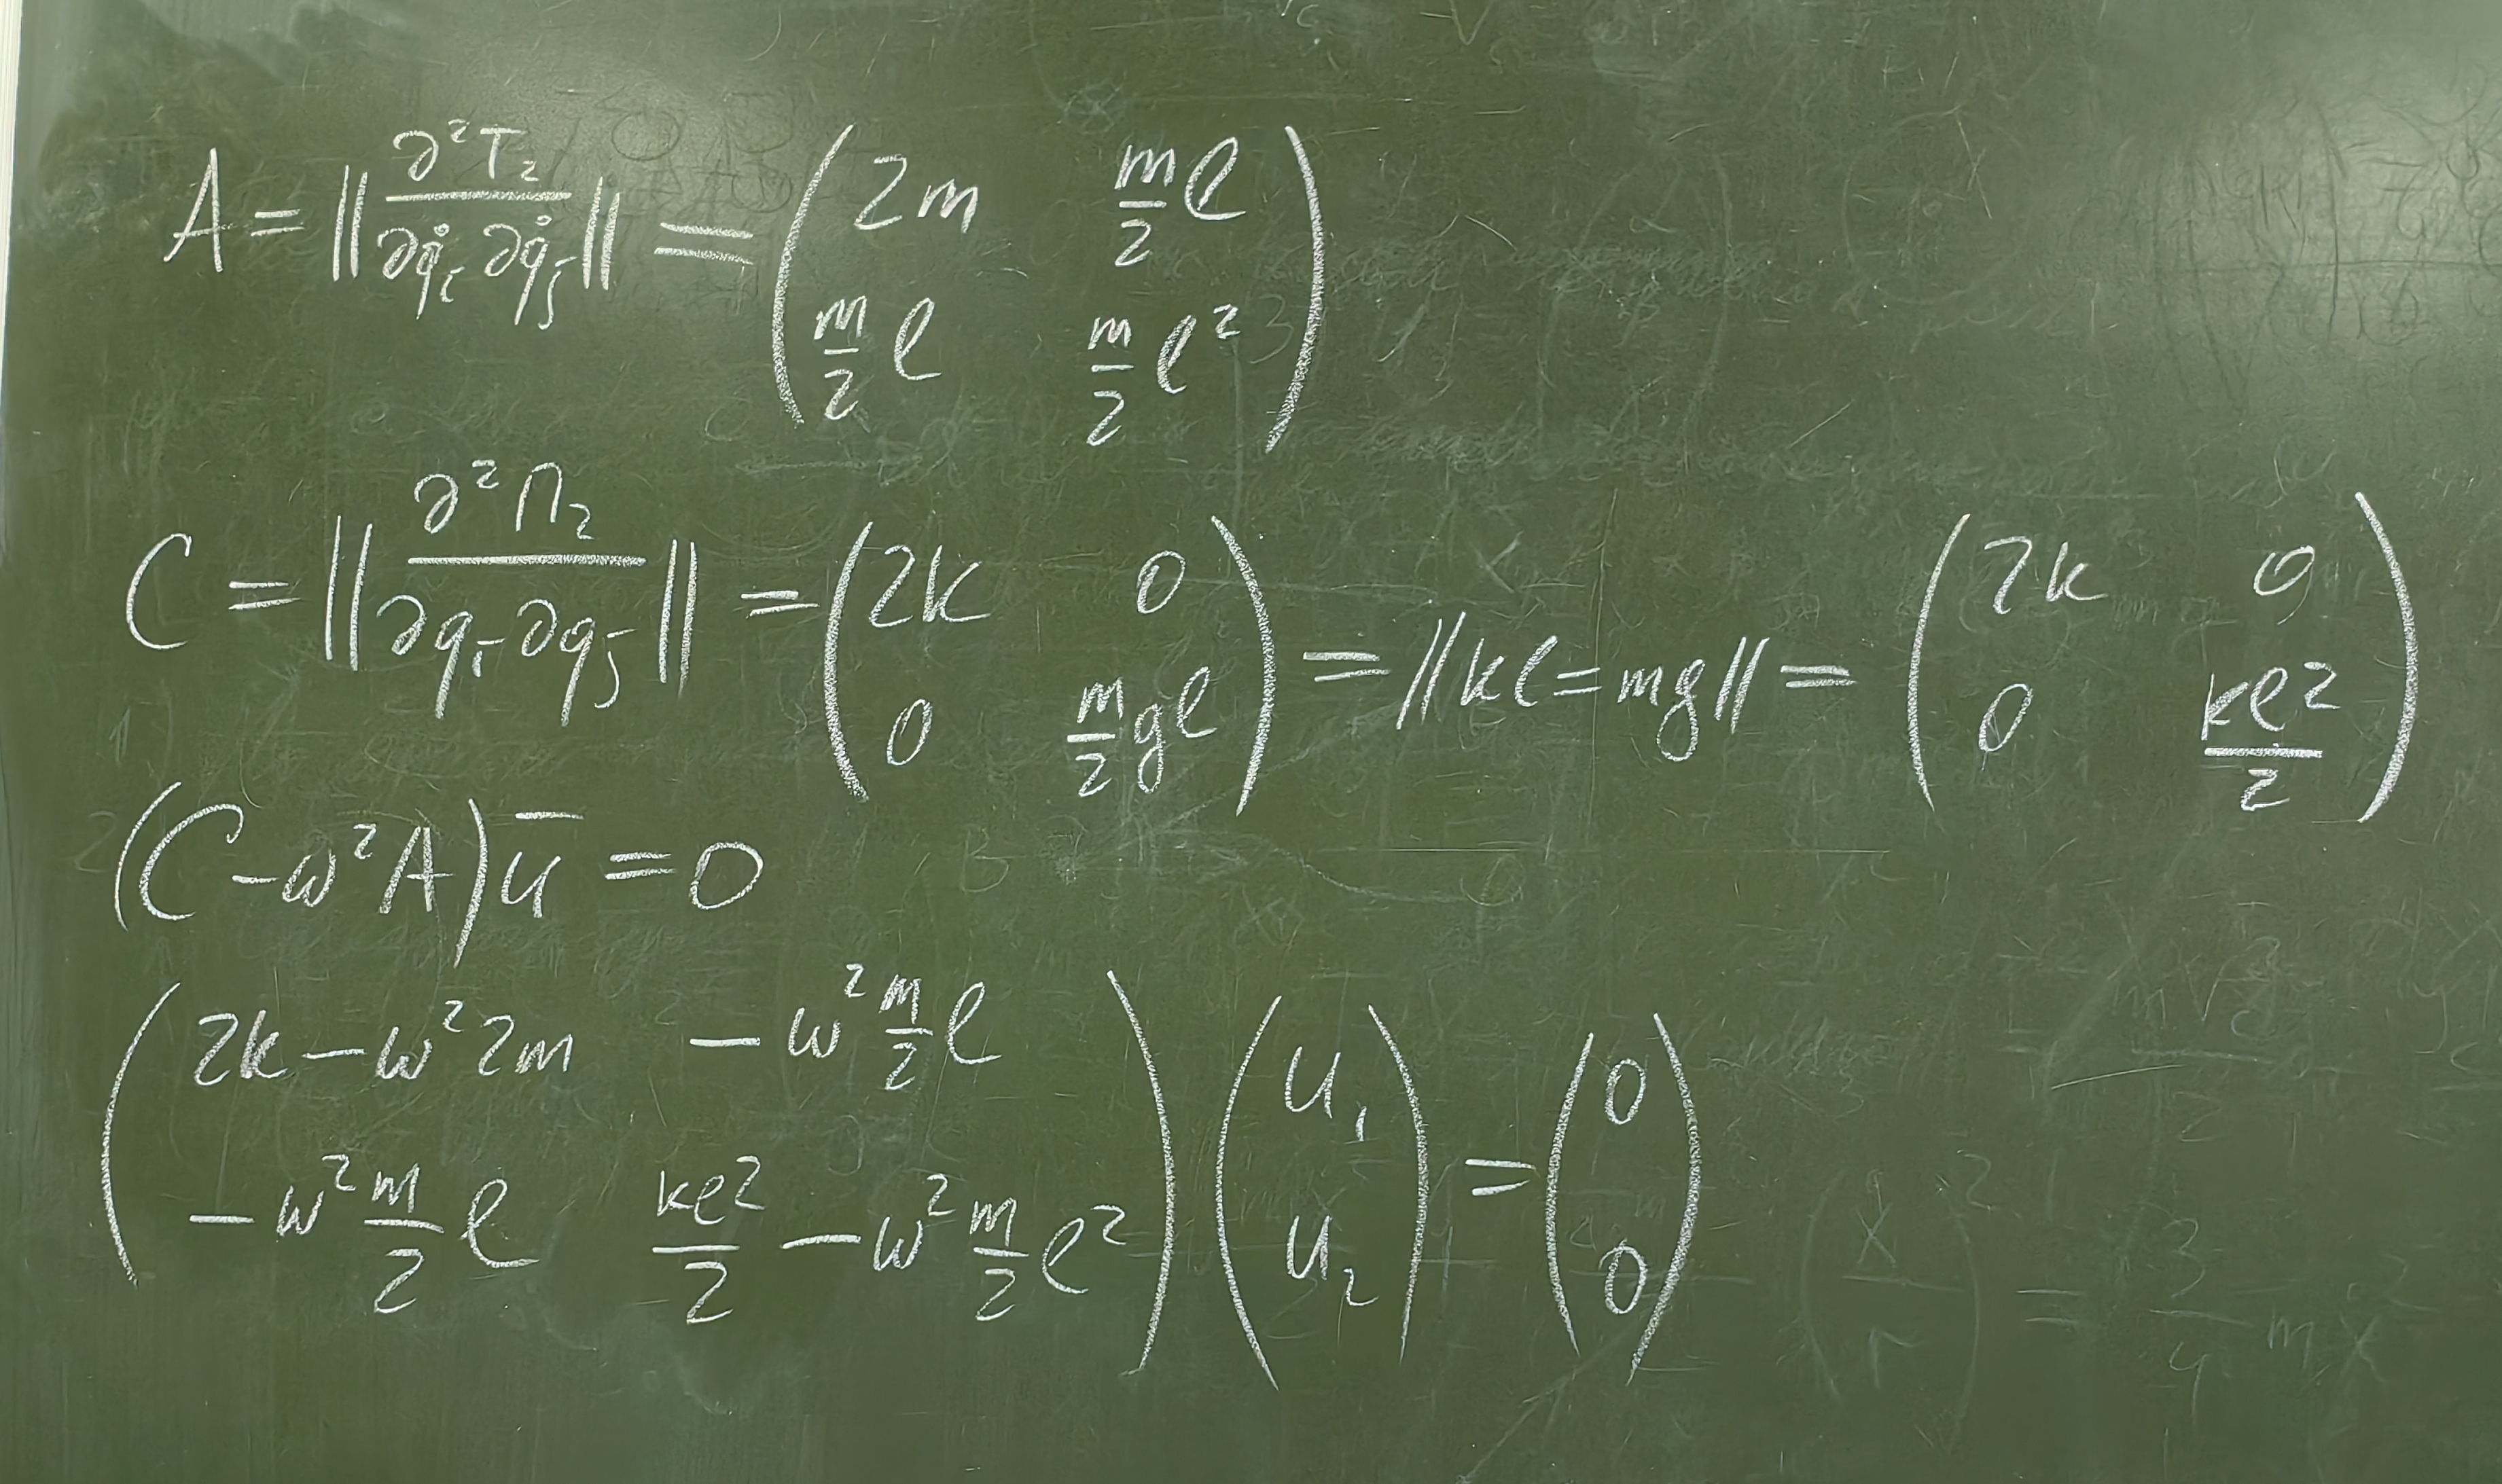 A = ||∂²T₂/∂q̇ᵢ∂q̇ⱼ|| = (2m  m/2 ℓ; m/2 ℓ  m/2 ℓ²)
C = ||∂²Π₂/∂qᵢ∂qⱼ|| = (2k  0; 0  m/2 gℓ) = ||kℓ=mg|| = (2k  0; 0  kℓ²/2)
(C-ω²A)ū = 0
(2k-ω²2m  -ω² m/2 ℓ; -ω² m/2 ℓ  kℓ²/2 - ω² m/2 ℓ²)(u₁; u₂) = (0; 0)